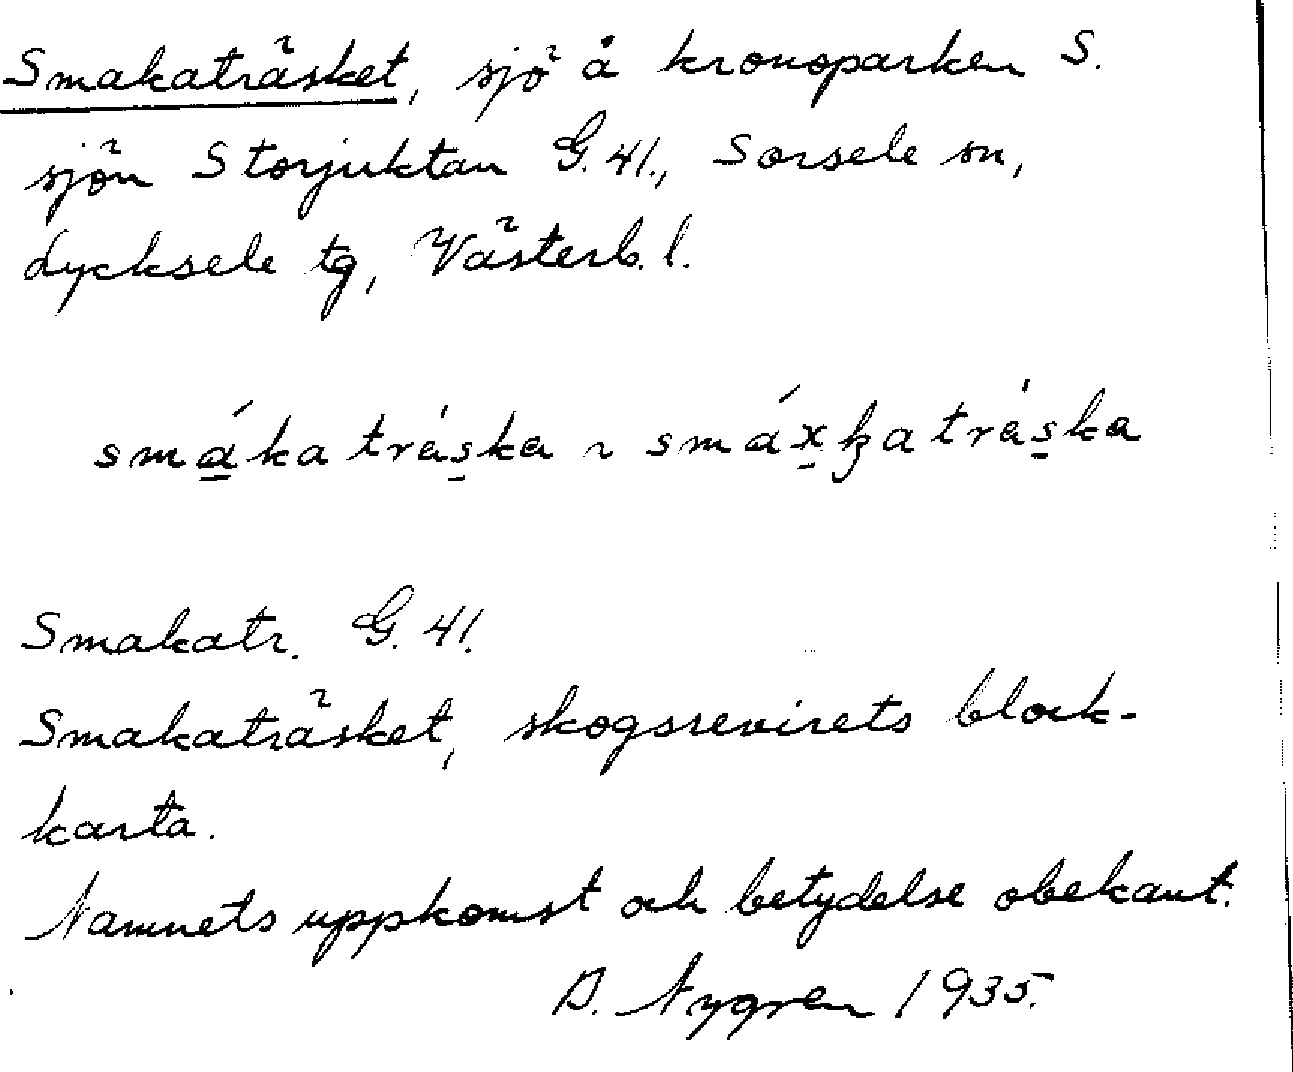 Smakaträsket, sjö å kronoparken S.
sjön Storjuktan G.41., Sorsele sn,
Lycksele tg, Västerb. l.
smáka tráska ~ smáxkatráska
Smakatr. G. 41.
Smakaträsket, skogsrevirets block-
karta.
Namnets uppkomst och betydelse obekant.
D. Nygren 1935.